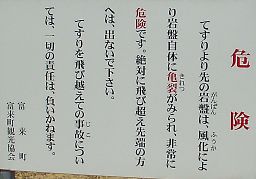 危険
てすりより先の岩盤は、風化によ
がんばん
ふうか
り岩盤自体に亀裂がみられ、非常に
きれつ
危険です。絶対に飛び超え先端の方
へは、出ないで下さい。
てすりを飛び越えての事故につい
じこ
ては、一切の責任は、負いかねます。
富来町
富来町観光協会